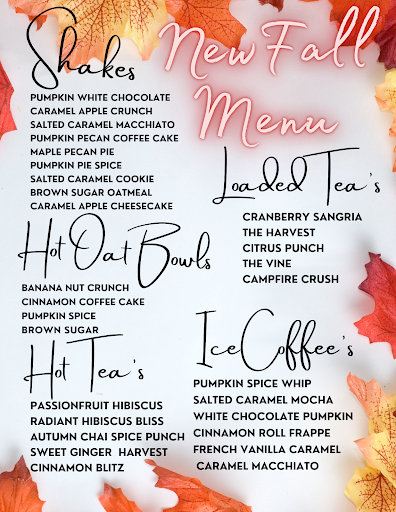 New Fall
Menu
Shakes
PUMPKIN WHITE CHOCOLATE
CARAMEL APPLE CRUNCH
SALTED CARAMEL MACCHIATO
PUMPKIN PECAN COFFEE CAKE
MAPLE PECAN PIE
PUMPKIN PIE SPICE
SALTED CARAMEL COOKIE
BROWN SUGAR OATMEAL
CARAMEL APPLE CHEESECAKE
Loaded Tea's
CRANBERRY SANGRIA
THE HARVEST
CITRUS PUNCH
THE VINE
CAMPFIRE CRUSH
Hot Oat Bowls
BANANA NUT CRUNCH
CINNAMON COFFEE CAKE
PUMPKIN SPICE
BROWN SUGAR
Hot Tea's
PASSIONFRUIT HIBISCUS
RADIANT HIBISCUS BLISS
AUTUMN CHAI SPICE PUNCH
SWEET GINGER HARVEST
CINNAMON BLITZ
Ice Coffee's
PUMPKIN SPICE WHIP
SALTED CARAMEL MOCHA
WHITE CHOCOLATE PUMPKIN
CINNAMON ROLL FRAPPE
FRENCH VANILLA CARAMEL
CARAMEL MACCHIATO